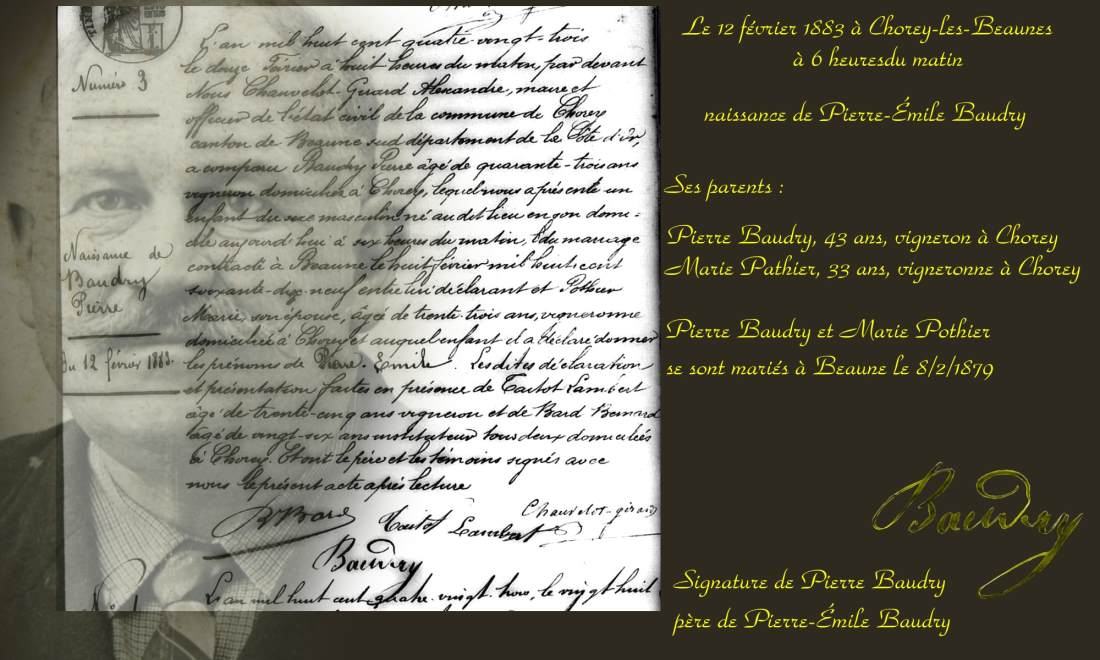 Numéro 3
Naissance de
Baudry
Pierre
Du 12 février 1883.
L'an mil huit cent quatre-vingt-trois
le douze Février à huit heures du matin, par devant
Nous Chauvelot-Girard Alexandre, maire et
officier de l'état civil de la commune de Chorey
canton de Beaune sud département de la Côte d'or,
a comparu Baudry Pierre âgé de quarante-trois ans
vigneron domicilié à Chorey, lequel nous a présenté un
enfant du sexe masculin né au dit lieu en son domi-
cile aujourd'hui à six heures du matin, du mariage
contracté à Beaune le huit février mil huit cent
soixante-dix-neuf entre lui déclarant et Pothier
Marie, son épouse, âgée de trente-trois ans, vigneronne
domiciliée à Chorey et auquel enfant il a déclaré donner
les prénoms de Pierre-Emile. Les dites déclaration
et présentation faites en présence de Tartot Lambert
âgé de trente-cinq ans vigneron et de Bard Bernard
âgé de vingt-six ans instituteur tous deux domiciliés
à Chorey. Et ont le père et les témoins signés avec
nous le présent acte après lecture
B. Bard Tartot Lambert Chauvelot-girard
Baudry
L'an mil huit cent quatre-vingt-trois, le vingt huit
Le 12 février 1883 à Chorey-les-Beaunes
à 6 heuresdu matin
naissance de Pierre-Émile Baudry
Ses parents :
Pierre Baudry, 43 ans, vigneron à Chorey
Marie Pathier, 33 ans, vigneronne à Chorey
Pierre Baudry et Marie Pothier
se sont mariés à Beaune le 8/2/1879
Baudry
Signature de Pierre Baudry
père de Pierre-Émile Baudry